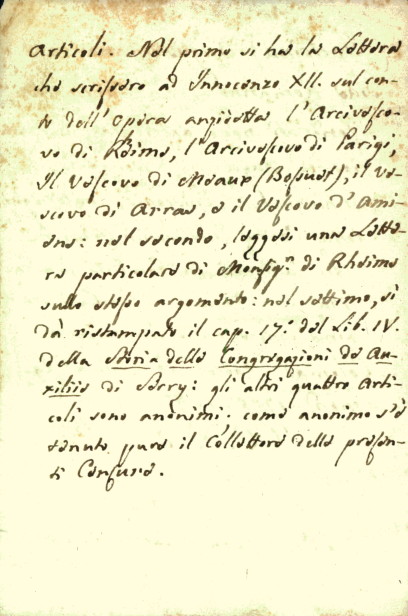 Articoli. Nel primo si ha la Lettera
che scrissero ad Innocenzo XII. sul con-
to dell'opera anzidetta l'Arcivesco-
vo di Reims, l'Arcivescovo di Parigi,
Il Vescovo di Meaux (Bossuet), il Ve-
scovo di Arras, e il Vescovo d'Ami-
ens: nel secondo, leggesi una Lette-
ra particolare di Monsigr. di Rheims
sullo stesso argomento: nel settimo, si
dà ristampato il cap. 17. del Lib. IV.
della Storia delle Congregazioni de Au-
xiliis di Serry: gli altri quattro Arti-
coli sono anonimi. come anonimo s'è
tenuto pure il Collettore delle presen-
ti Censure.